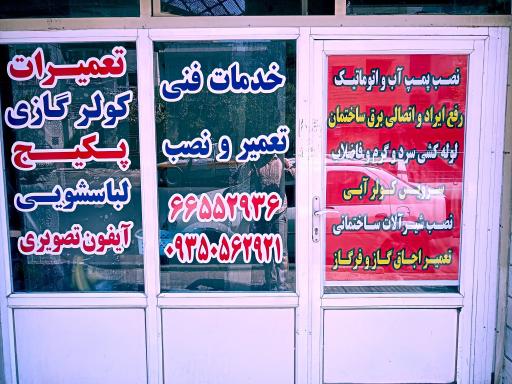 نصب پمپ آب و اتوماتیک
رفع ایراد و اتصالی برق ساختمان
لوله کشی سرد و گرم و فاضلاب
سرویس کولر آبی
نصب شیرآلات ساختمانی
تعمیر اجاق گاز و فرگاز
خدمات فنی
تعمیر و نصب
۶۶۵۵۲۹۳۶
۰۹۳۵۰۵۶۲۹۲۱
تعمیرات
کولر گازی
پکیج
لباسشویی
آیفون تصویری